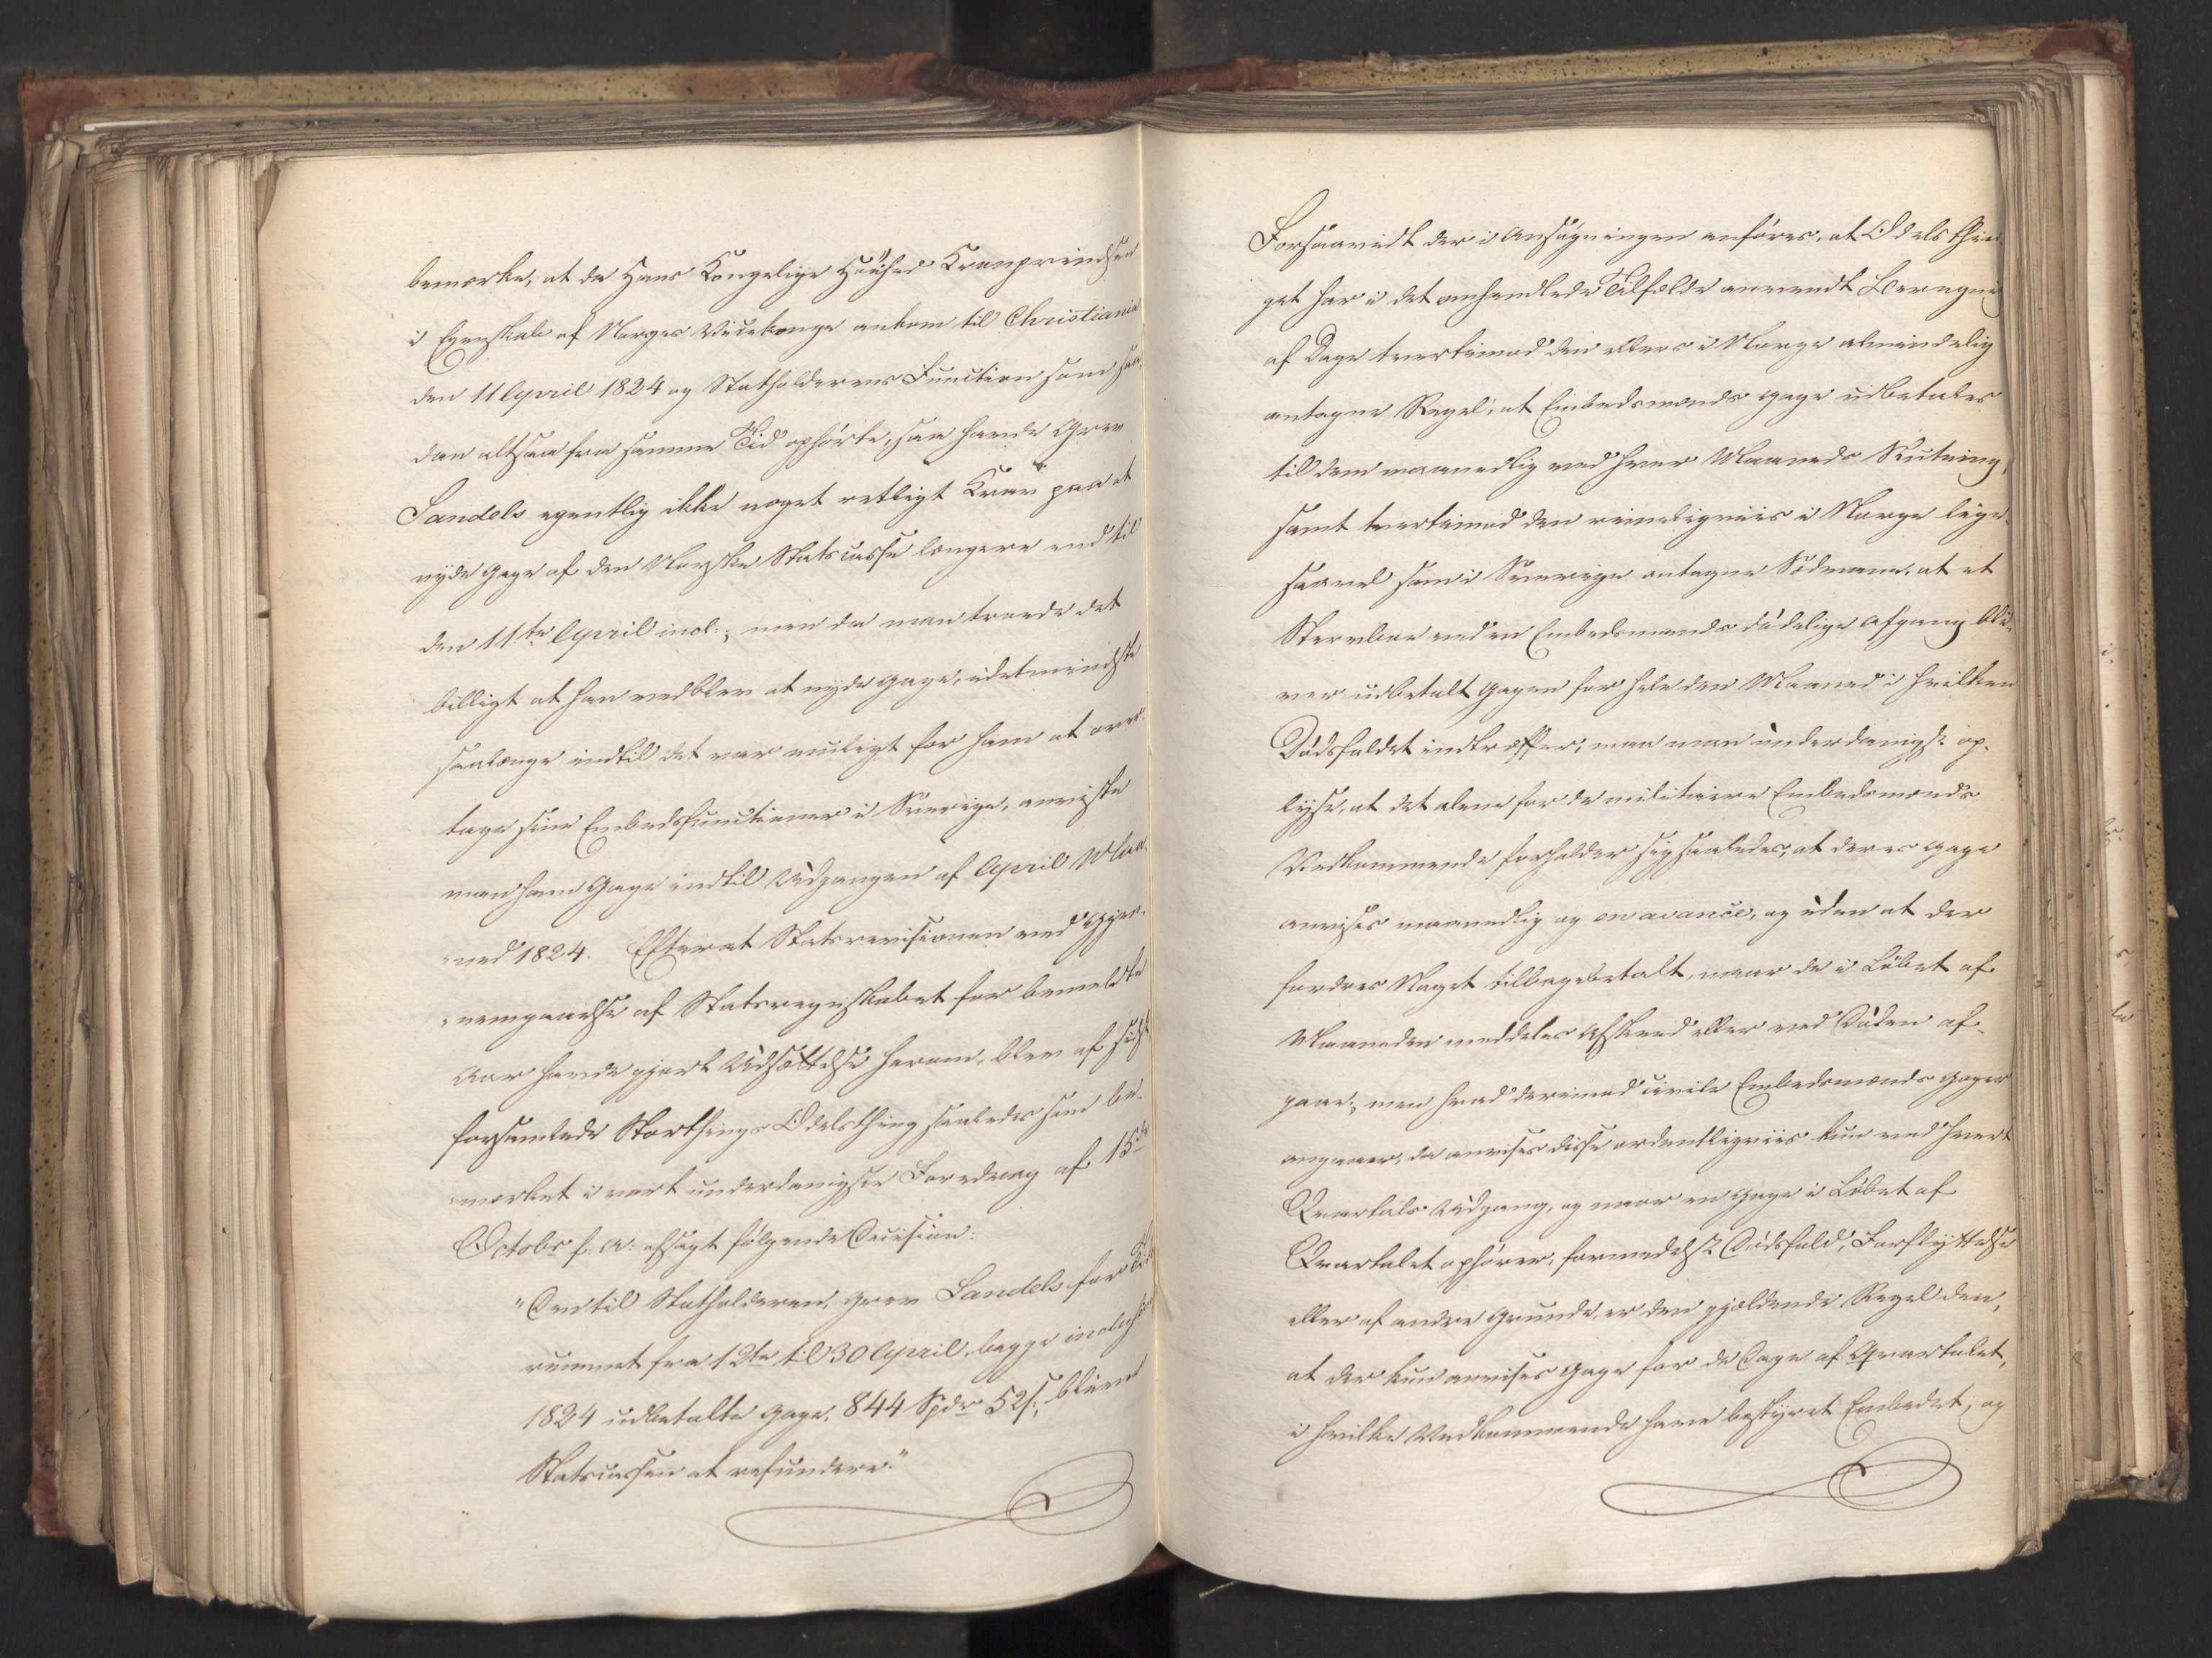 bemærke, at da Hans Kongelige Høihed Kronprindsen
i Egenskab af Norges Vicekonge ankom til Christiania
den 11 April 1824 og Statholderens Function som saa¬
dan altsaa fra samme Tid ophørte, saa havde Grev
Sandels egentlig ikke noget retligt Krav paa at
nyde Gage af den Norske Statscasse længere end til
den 11te April incl:; men da man troede det
billigt at han vedblev at nyde Gage, idetmindste
saalænge indtil det var muligt for ham at over¬
tage sine Embedsfunctioner i Sverige, anviiste
man ham Gage indtil Udgangen af April Maa¬
ned 1824. Efterat Statsrevisionen ved Gjen¬
nemgaaelse af Statsregnskabet for bemeldte
Aar havde gjort Udsættelse herom, blev af sidst
forsamlede Storthings Odelsthing saaledes som be¬
mærket i vort underdanigste Foredrag af 15de
Octobr f: A: afsagt følgende Decision:
"Den til Statholderen, Grev Sandels for Tids
rummet fra 12te til 30 April, begge inclusive
1824 udbetalte Gage, 844 Spdr 52 s:, bliver
Statscassen at refundere."
Forsaavidt der i Ansøgningen anføres, at Odelsthin
get har i det omhandlede Tilfælde anvendt Beregning
af Dage tvertimod den ellers i Norge almindelig
antagne Regel, at Embedsmænds Gage udbetales
til dem maanedlig ved hver Maaneds Slutning,
samt tvertimod den rimeligviis i Norge lige¬
saavel som i Sverige antagne Sædvane, at et
Sterboe ved en Embedsmands dødelige Afgang bli¬
ver udbetalt Gagen for hele den Maaned i hvilken
Dødsfaldet indtræffer, maa man underdanigst op¬
lyse, at det alene for de militaire Embedsmænds
Vedkommende forholder sig saaledes, at deres Gage
anvises maanedlig og en avance, og uden at der
fordres Noget tilbagebetalt, naar de i Løbet af
Maaneden meddeles Afskeed eller ved Døden af¬
gaae; men hvad derimod civile Embedsmænds Gager
angaaer, da anvises disse ordentligviis kun ved hvert
Qvartals Udgang, og naar en Gage i Løbet af
Qvartalet ophører, formedelst Dødsfald, Forflyttelse
eller af andre Grunde, er den gjældende Regel den,
at der kun anvises Gage for de Dage af Qvartalet,
i hvilke Vedkommende have bestyret Embedet, og